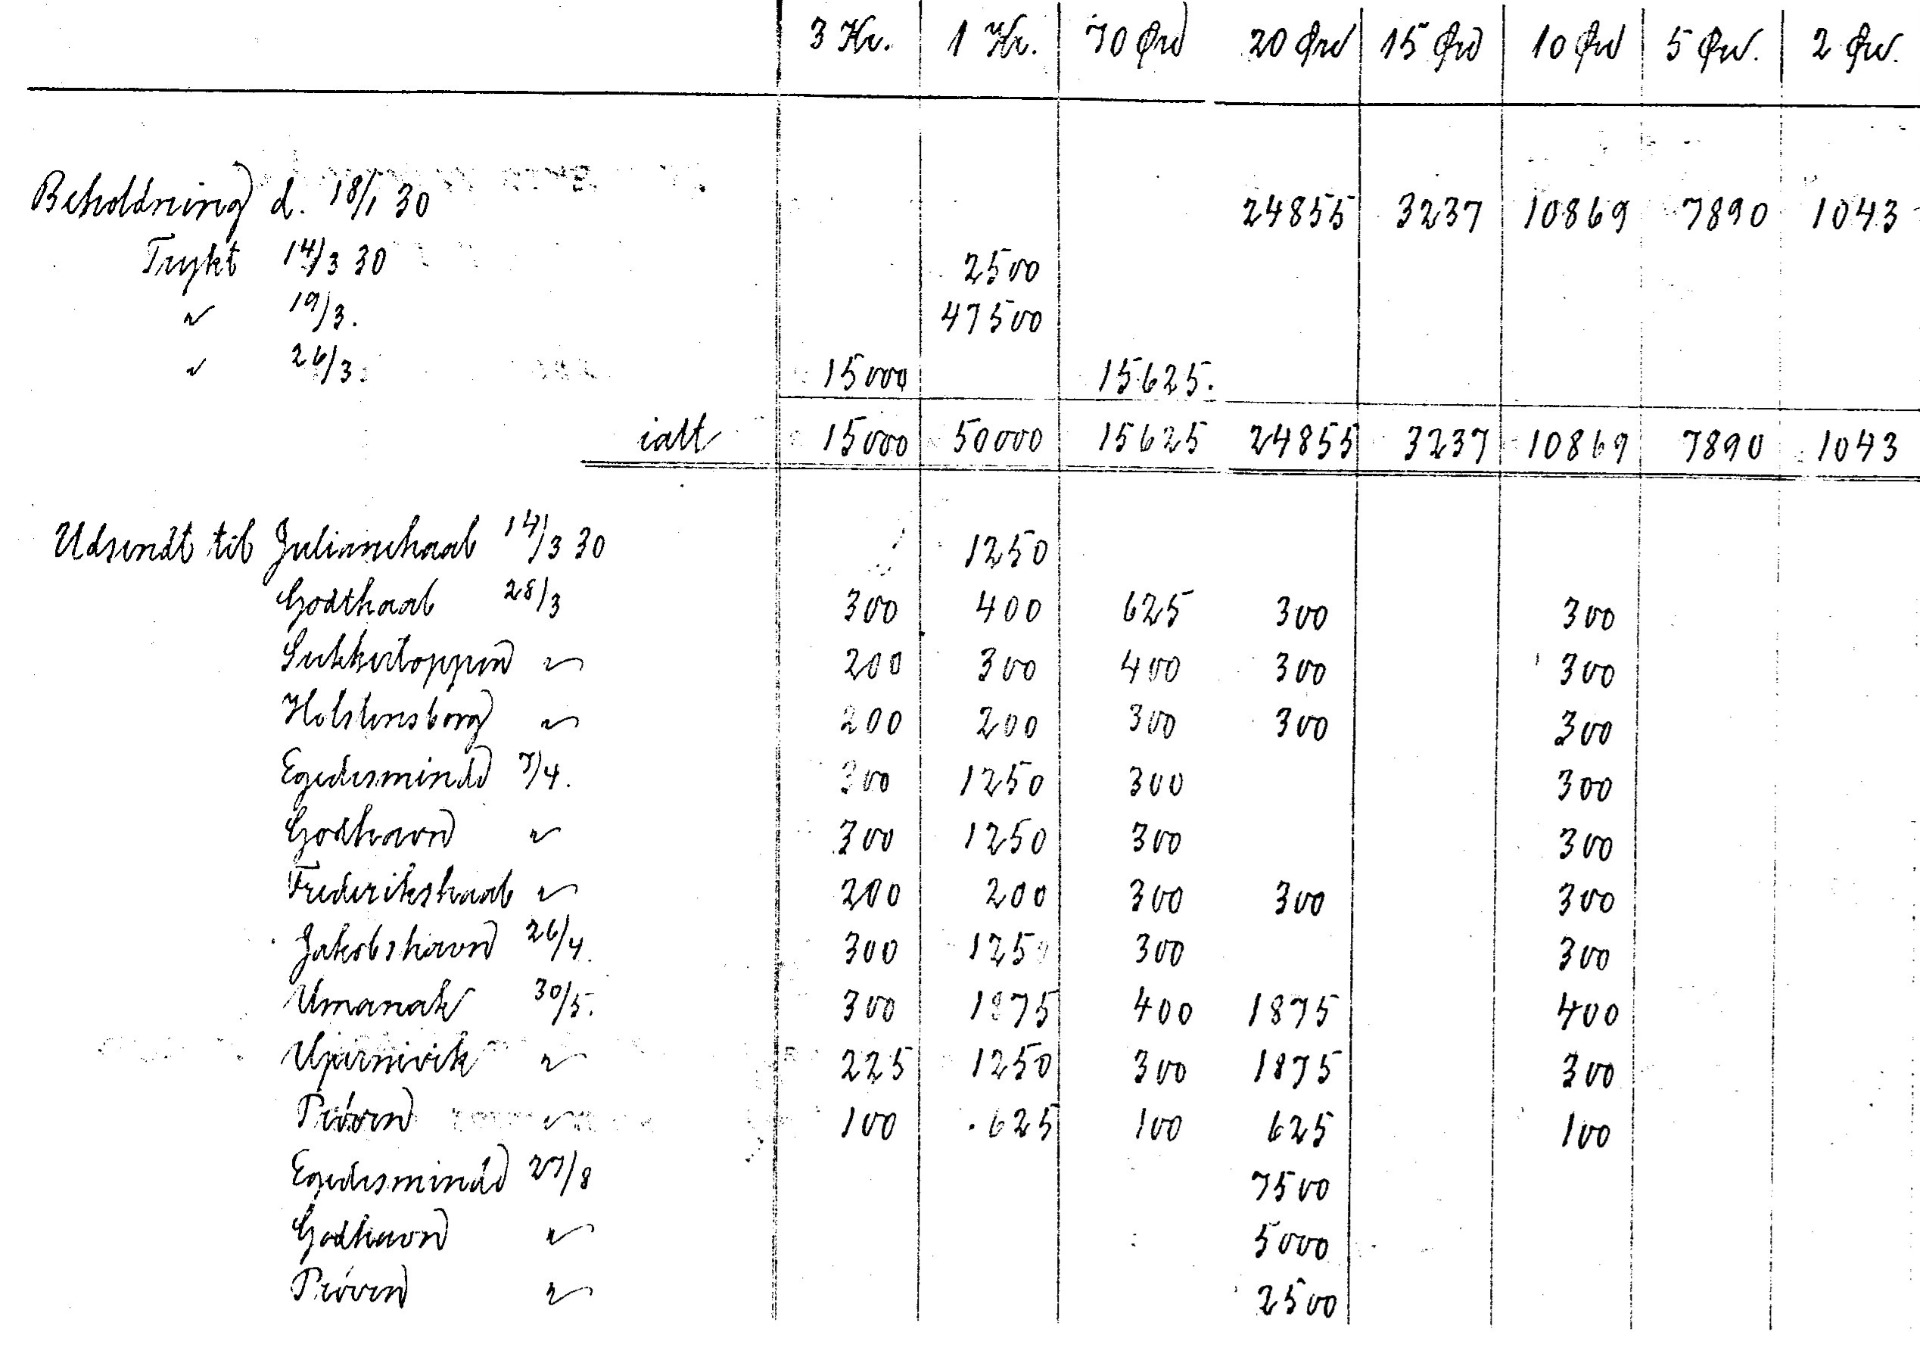 3 Kr. 1 Kr. 70 Øre 20 Øre 15 Øre 10 Øre 5 Øre. 2 Øre.
Beholdning d. 18/1 30 24855 3237 10869 7890 1043
Trykt 14/3 30 2500
〃 19/3. 47500
〃 26/3. 15000 15625.
ialt 15000 50000 15625 24855 3237 10869 7890 1043
Udsendt til Julianehaab 14/3 30 1250
Godthaab 28/3 300 400 625 300 300
Sukkertoppen 〃 200 300 400 300 300
Holstensborg 〃 200 200 300 300 300
Egedesminde 7/4. 300 1250 300 300
Godhavn 〃 300 1250 300 300
Frederikshaab 〃 200 200 300 300 300
Jakobshavn 26/4. 300 1250 300 300
Umanak 30/5. 300 1875 400 1875 400
Upernivik 〃 225 1250 300 1875 300
Prøven 〃 100 625 100 625 100
Egedesminde 27/8 7500
Godhavn 〃 5000
Prøven 〃 2500